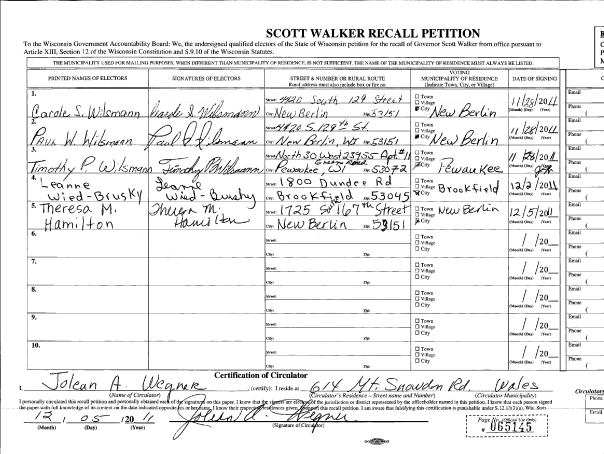 SCOTT WALKER RECALL PETITION
To the Wisconsin Government Accountability Board: We, the undersigned qualified electors of the State of Wisconsin petition for the recall of Governor Scott Walker from office pursuant to
Article XIII, Section 12 of the Wisconsin Constitution and S.9.10 of Wisconsin Statutes.
THE MUNICIPALITY USED FOR MAILING PURPOSES, WHEN DIFFERENT THAN MUNICIPALITY OF RESIDENCE, IS NOT SUFFICIENT. THE NAME OF THE MUNICIPALITY OF RESIDENCE MUST ALWAYS BE LISTED
PRINTED NAMES OF ELECTORS SIGNATURES OF ELECTORS STREET & NUMBER OR RURAL ROUTE VOTING MUNICIPALITY OF RESIDENCE DATE OF SIGNING
Rural address must also include box or fire no. (Indicate Town, City, or Village)
1. Carole S. Wilsmann Carole S. Wilsmann Street 4420 South 129 Street Town Village City New Berlin 11/28/2011 Email
City New Berlin Zip 53151 (Month) (Day) (Year) Phone
2. Paul W. Wilsmann Street 4420 S. 129th St. Town Village City New Berlin 11/28/2011 Email
City New Berlin, WI Zip 53151 Phone
3. Timothy P. Wilsmann Timothy P. Wilsmann Street North 30 West 23455 Apt. #11 Town Village City Pewaukee 11/28/2011 Email
City Pewaukee, WI Zip 53072 Phone
4. Leanne Wied-Brusky Leanne Wied-Brusky Street 1800 Dundee Rd Town Village City Brookfield 12/2/2011 Email
City Brookfield Zip 53045 Phone
5. Theresa M. Hamilton Theresa M. Hamilton Street 1725 167th Street Town Village City New Berlin 12/5/2011 Email
City New Berlin Zip 53151 Phone
6. Street: City: Zip: Town Village City / /20 (Month) (Day) (Year) Email Phone
7. Street: City: Zip: Town Village City / /20 (Month) (Day) (Year) Email Phone
8. Street: City: Zip: Town Village City / /20 (Month) (Day) (Year) Email Phone
9. Street: City: Zip: Town Village City / /20 (Month) (Day) (Year) Email Phone
10. Street: City: Zip: Town Village City / /20 (Month) (Day) (Year) Email Phone
Certification of Circulator
I, Jolean A. Wegner, (certify): I reside at 614 Mt. Snowdon Rd. Wales
(Name of Circulator) (Circulator's Residence - Street name and Number) (Circulator Municipality)
I personally circulated this recall petition and personally obtained each of the signatures on this paper. I know that the signers are electors of the jurisdiction or district represented by the officeholder named in this petition. I know that each person signed
the paper with full knowledge of its content on the date indicated opposite his or her name. I know their respective residences given. I support this recall petition. I am aware that falsifying this certification is punishable under S.12.13(3)(a), Wis. Stats.
12 / 05 / 2011 Jolean A. Wegner
(Month) (Day) (Year) (Signature of Circulator)
Page No. (Official Use Only)
065145